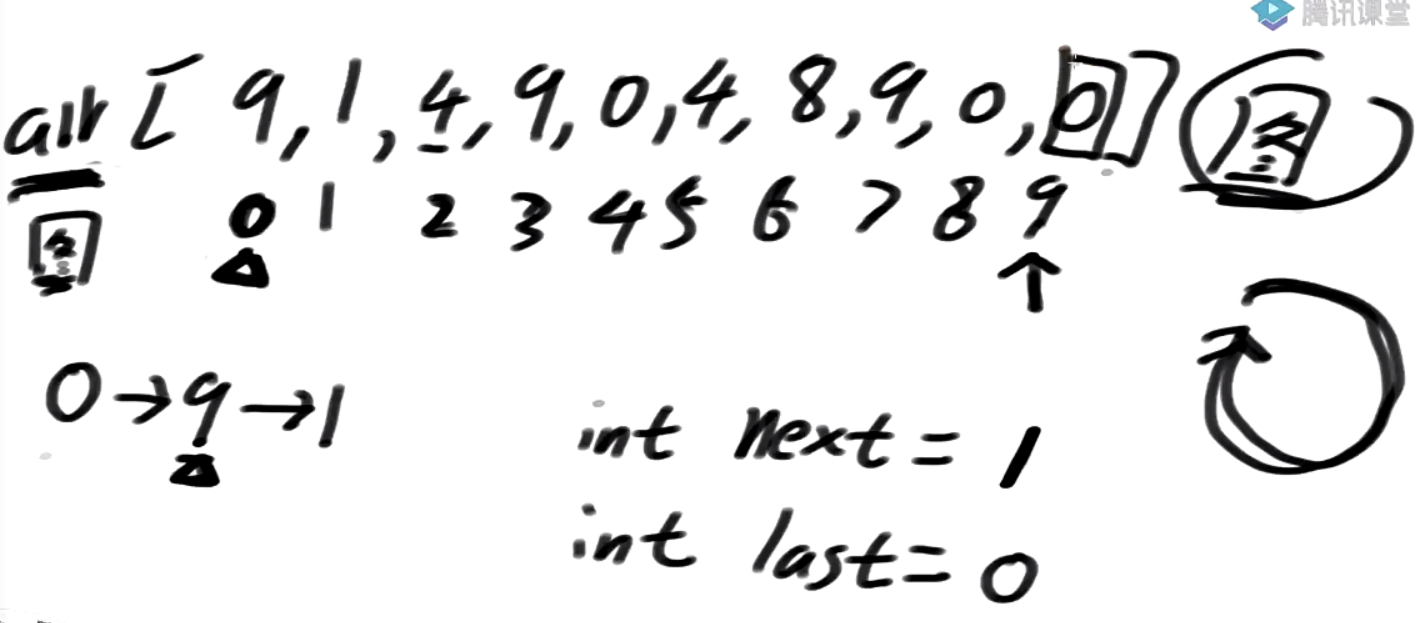 腾讯课堂
arr [ 9, 1, 4, 9, 0, 4, 8, 9, 0, 0 ] 图
图 0 1 2 3 4 5 6 7 8 9
0→9→1
int next = 1
int last = 0